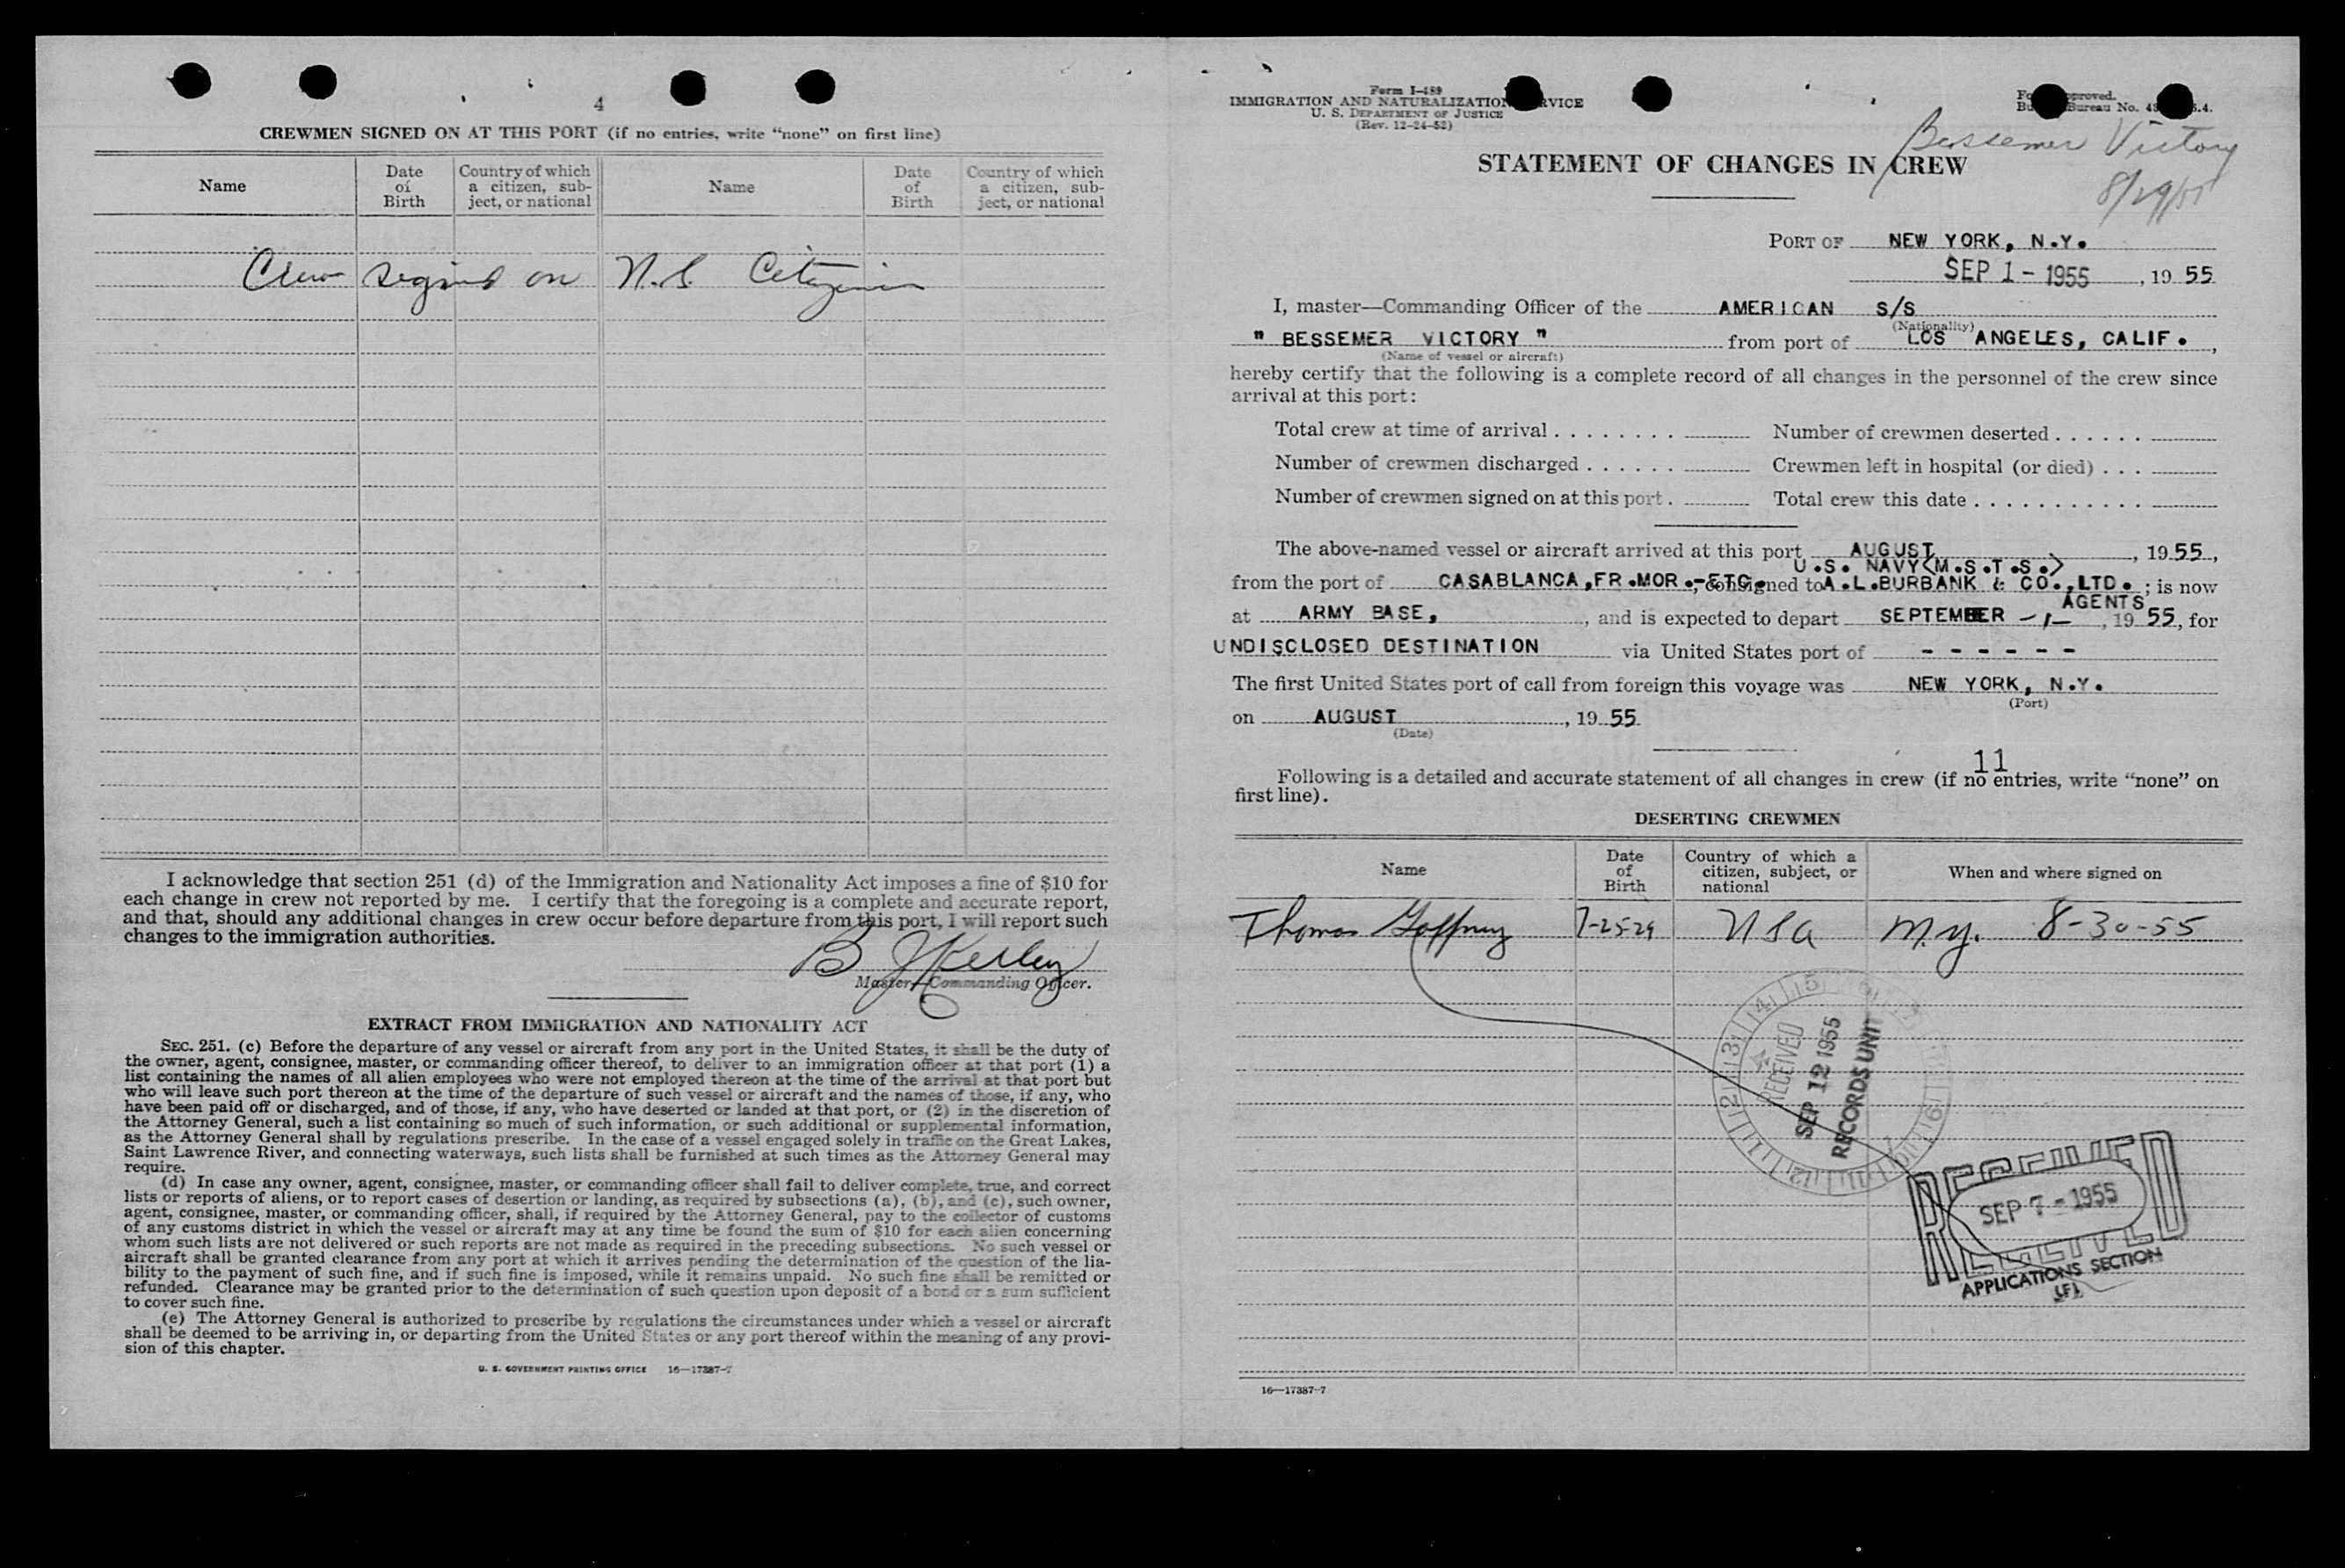 4
CREWMEN SIGNED ON AT THIS PORT (if no entries, write "none" on first line)
Name
Date of Birth
Country of which a citizen, subject, or national
Name
Date of Birth
Country of which a citizen, subject, or national
Crew signed on U.S. Citizens
I acknowledge that section 251 (d) of the Immigration and Nationality Act imposes a fine of $10 for
each change in crew not reported by me. I certify that the foregoing is a complete and accurate report,
and that, should any additional changes in crew occur before departure from this port, I will report such
changes to the immigration authorities.
B J Kelley
Master—Commanding Officer.
EXTRACT FROM IMMIGRATION AND NATIONALITY ACT
SEC. 251. (c) Before the departure of any vessel or aircraft from any port in the United States, it shall be the duty of
the owner, agent, consignee, master, or commanding officer thereof, to deliver to an immigration officer at that port (1) a
list containing the names of all alien employees who were not employed thereon at the time of the arrival at that port but
who will leave such port thereon at the time of the departure of such vessel or aircraft and the names of those, if any, who
have been paid off or discharged, and of those, if any, who have deserted or landed at that port, or (2) in the discretion of
the Attorney General, such a list containing so much of such information, or such additional or supplemental information,
as the Attorney General shall by regulations prescribe. In the case of a vessel engaged solely in traffic on the Great Lakes,
Saint Lawrence River, and connecting waterways, such lists shall be furnished at such times as the Attorney General may
require.
(d) In case any owner, agent, consignee, master, or commanding officer shall fail to deliver complete, true, and correct
lists or reports of aliens, or to report cases of desertion or landing, as required by subsections (a), (b), and (c), such owner,
agent, consignee, master, or commanding officer, shall, if required by the Attorney General, pay to the collector of customs
of any customs district in which the vessel or aircraft may at any time be found the sum of $10 for each alien concerning
whom such lists are not delivered or such reports are not made as required in the preceding subsections. No such vessel or
aircraft shall be granted clearance from any port at which it arrives pending the determination of the question of the lia-
bility to the payment of such fine, and if such fine is imposed, while it remains unpaid. No such fine shall be remitted or
refunded. Clearance may be granted prior to the determination of such question upon deposit of a bond or a sum sufficient
to cover such fine.
(e) The Attorney General is authorized to prescribe by regulations the circumstances under which a vessel or aircraft
shall be deemed to be arriving in, or departing from the United States or any port thereof within the meaning of any provi-
sion of this chapter.
U. S. GOVERNMENT PRINTING OFFICE 16—17387-7
Form I-489
IMMIGRATION AND NATURALIZATION SERVICE
U. S. DEPARTMENT OF JUSTICE
(Rev. 12-24-52)
Bessemer Victory
8/29/55
STATEMENT OF CHANGES IN CREW
PORT OF NEW YORK, N.Y.
SEP 1 - 1955, 19 55
I, master—Commanding Officer of the AMERICAN S/S
(Nationality)
" BESSEMER VICTORY " from port of LOS ANGELES, CALIF. ,
(Name of vessel or aircraft)
hereby certify that the following is a complete record of all changes in the personnel of the crew since
arrival at this port:
Total crew at time of arrival . . . . . . . . Number of crewmen deserted . . . . . .
Number of crewmen discharged . . . . . . Crewmen left in hospital (or died) . . .
Number of crewmen signed on at this port . Total crew this date . . . . . . . . . . .
The above-named vessel or aircraft arrived at this port AUGUST , 19 55 ,
U.S. NAVY (M.S.T.S.)
from the port of CASABLANCA,FR.MOR.-ETC. , consigned to A.L.BURBANK & CO.,LTD. ; is now
AGENTS
at ARMY BASE, , and is expected to depart SEPTEMBER -1- , 19 55, for
UNDISCLOSED DESTINATION via United States port of - - - - - -
The first United States port of call from foreign this voyage was NEW YORK, N.Y.
(Port)
on AUGUST , 19 55
(Date)
11
Following is a detailed and accurate statement of all changes in crew (if no entries, write "none" on
first line).
DESERTING CREWMEN
Name
Date of Birth
Country of which a citizen, subject, or national
When and where signed on
Thomas Gaffney 7-25-29 USA N.Y. 8-30-55
RECEIVED
SEP 12 1955
RECORDS UNIT
RECEIVED
SEP 7 - 1955
APPLICATIONS SECTION
16—17387-7